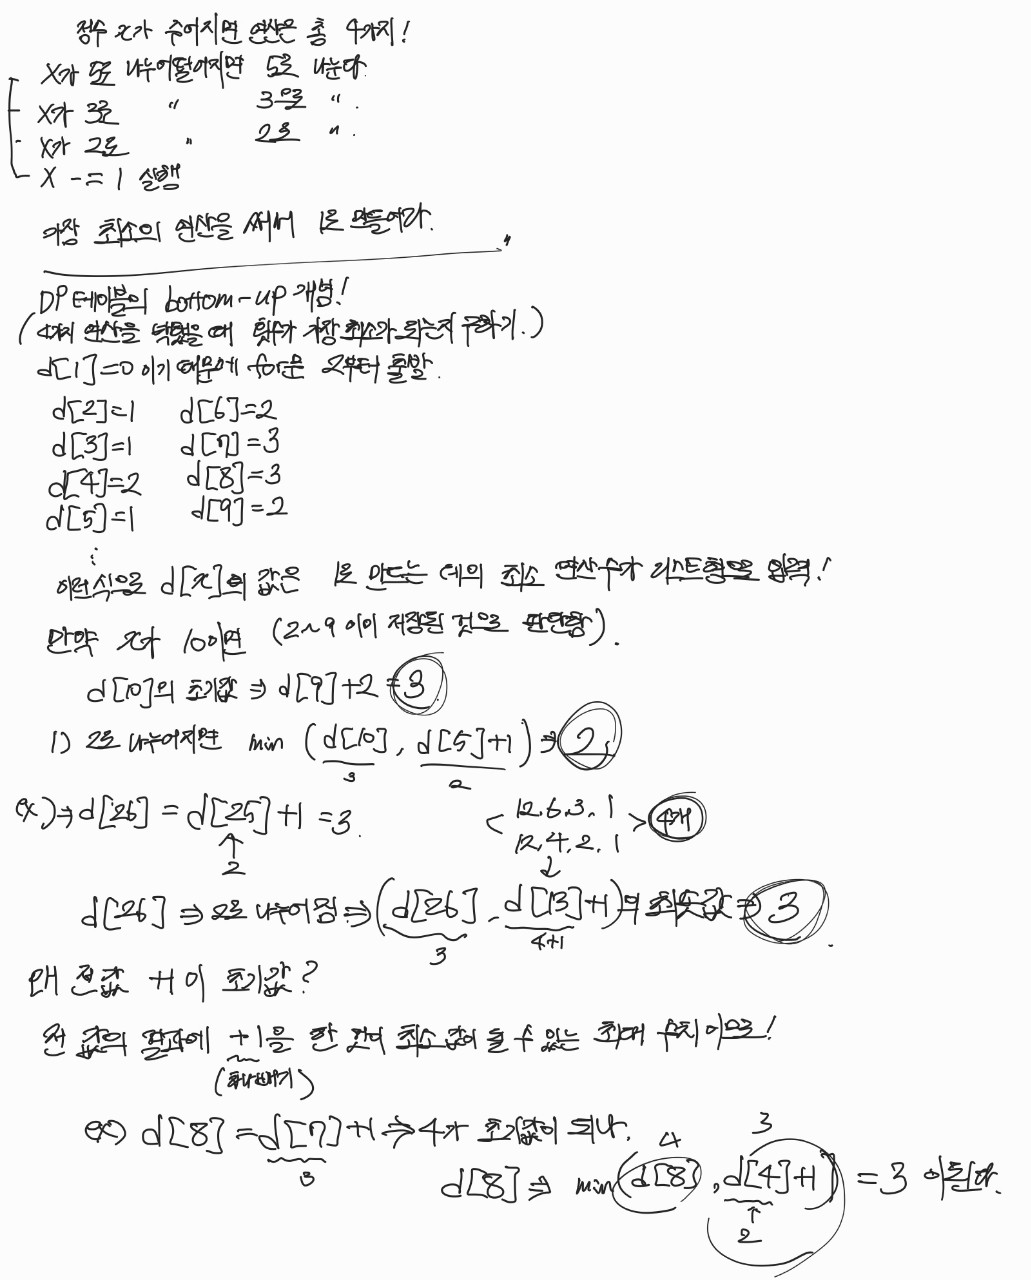 정수 x가 주어지면 연산은 총 4가지!
X가 5로 나누어떨어지면 5로 나눈다.
X가 3로 " 3으로 ".
X가 2로 " 2로 ".
X -= 1 실행
가장 최소의 연산을 써서 1로 만들어라.
DP테이블의 bottom-up 개념!
(4가지 연산을 했을 때 횟수가 가장 최소가 되는지 구하기.)
d[1]=0 이기 때문에 for문 2부터 출발.
d[2]=1 d[6]=2
d[3]=1 d[7]=3
d[4]=2 d[8]=3
d[5]=1 d[9]=2
이런식으로 d[x]의 값은 1로 만드는 데의 최소 연산수가 리스트형으로 입력!
만약 x가 10이면 (2~9 이미 저장된 것으로 판단함).
d[10]의 초기값 ⇒ d[9]+2 = 3
1) 2로 나누어지면 min (d[10], d[5]+1) ⇒ 2
3 2
ex) ⇒ d[26] = d[25]+1 = 3. < 12, 6, 3, 1 > 4개
2 12, 4, 2, 1
d[26] ⇒ 2로 나누어짐 ⇒ (d[26], d[13]+1)의 최솟값 ⇒ 3.
3 4+1
왜 전값 +1이 초기값?
전 값의 결과에 +1을 한 것이 최소값이 될 수 있는 최대 수치이므로!
(하나빼기)
ex) d[8] = d[7]+1 ⇒ 4가 초기값이 되나,
3
4 3
d[8] ⇒ min(d[8], d[4]+1) = 3 이된다.
2